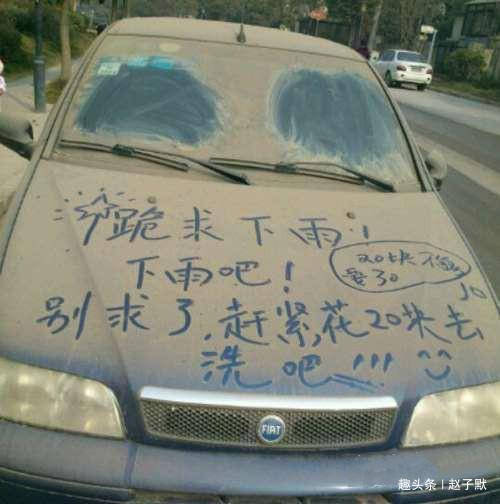 跪求下雨!
下雨吧!
20块不够
要30
别求了,赶紧花20块去
洗吧!!!
FIAT
趣头条 | 赵子默